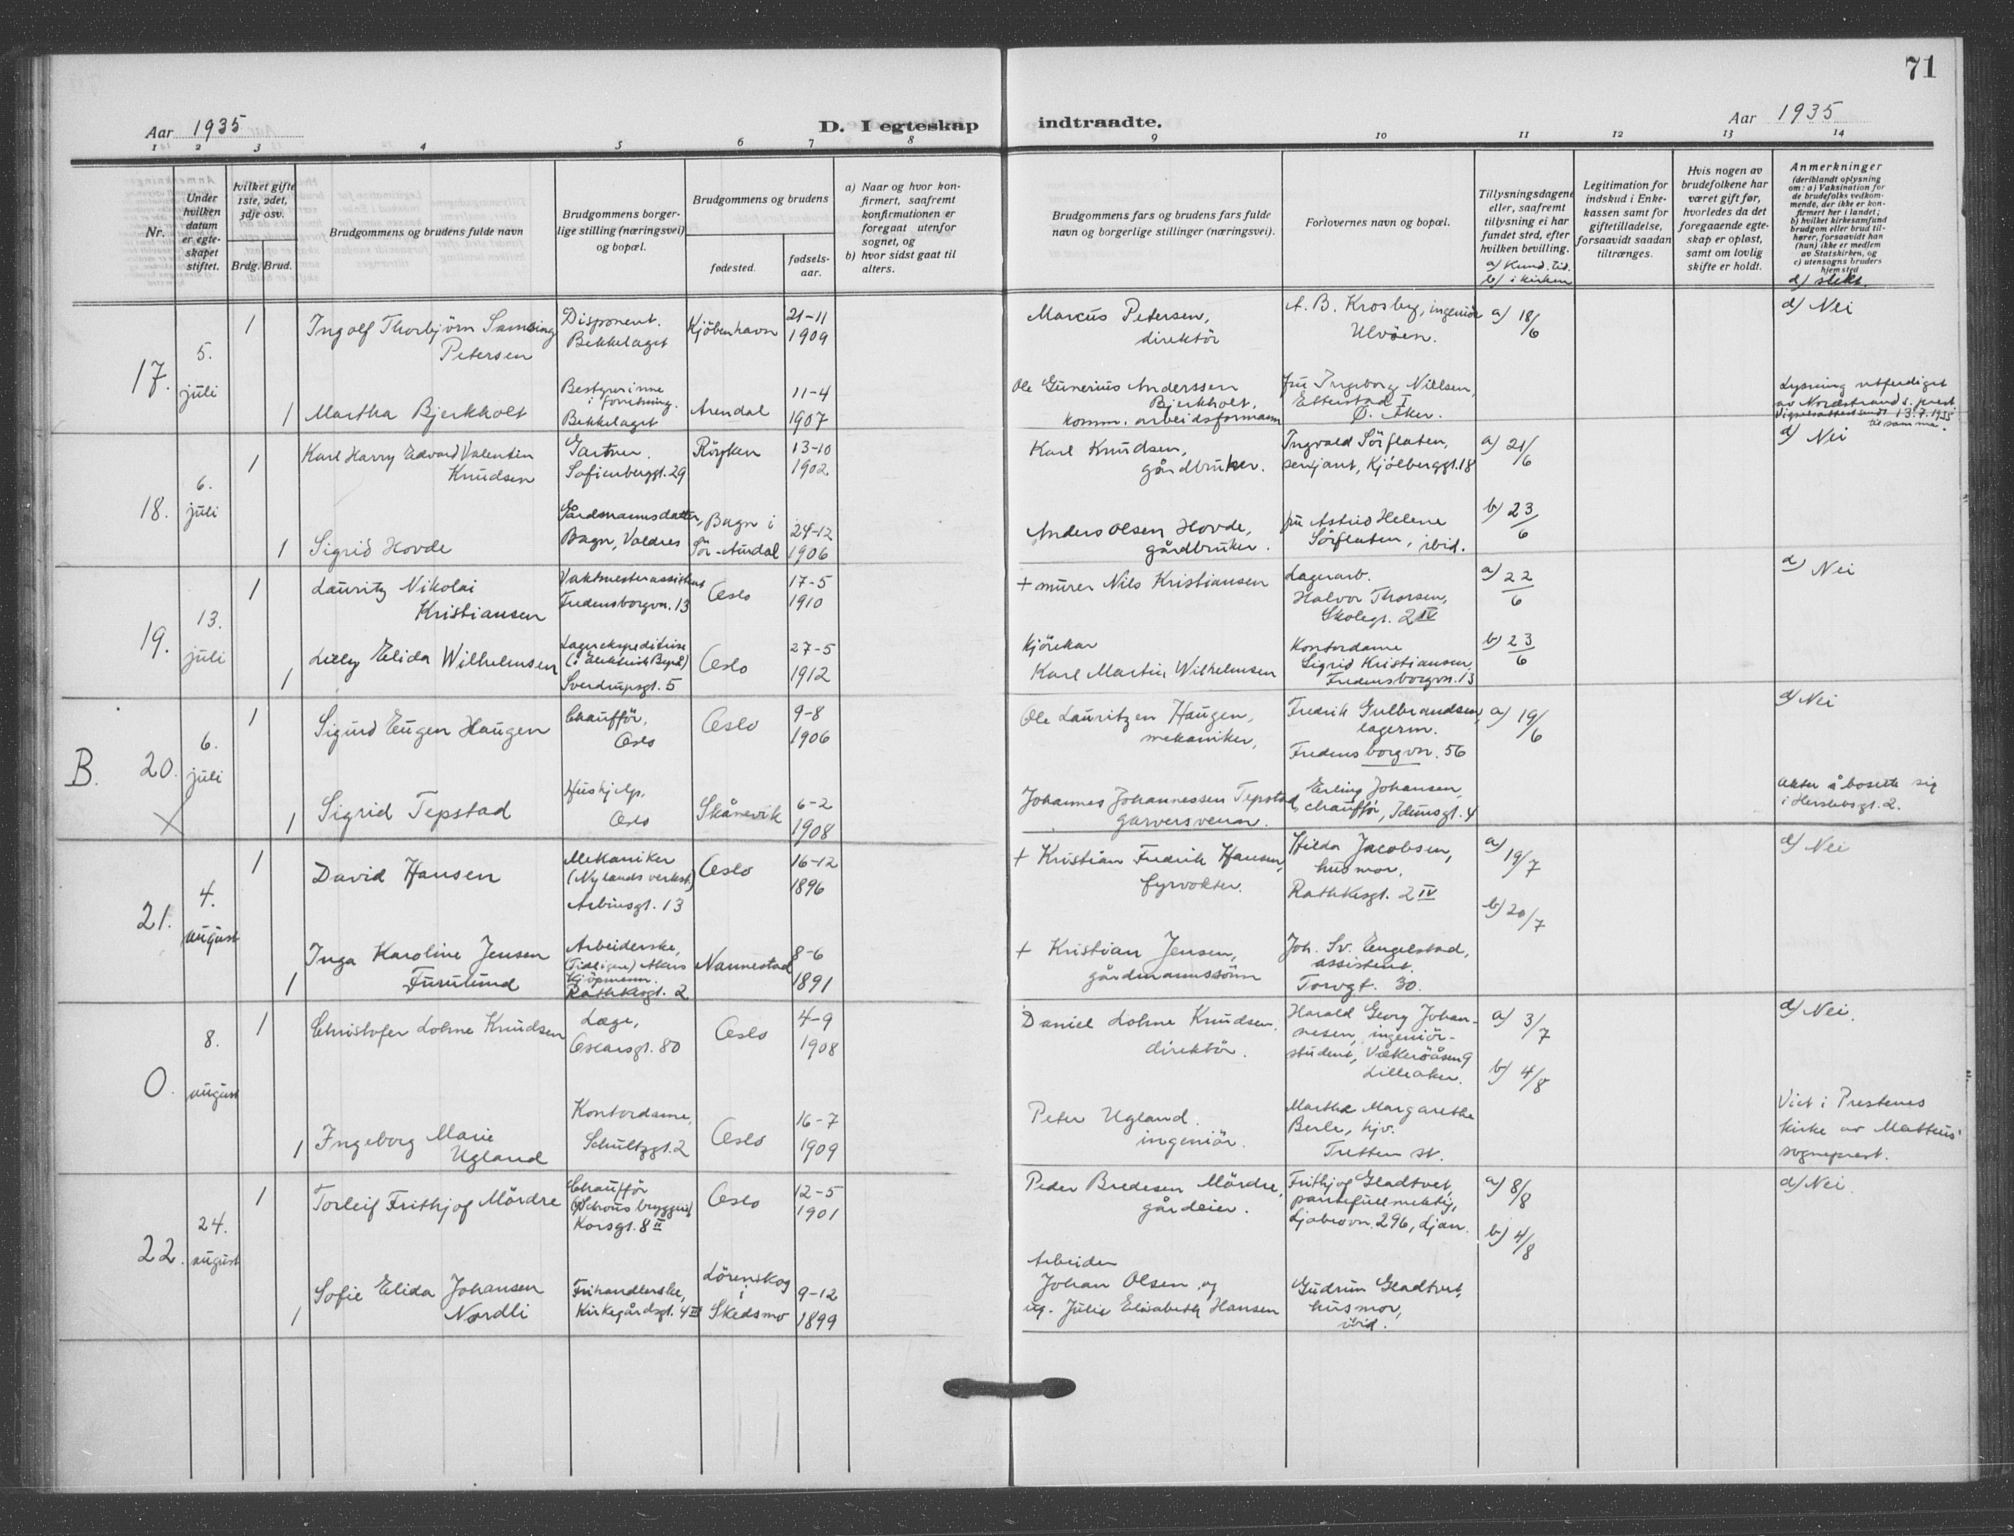 71
Aar 1935
D. I egteskap
indtraadte.
Aar 1935
1 2 3 4 5 6 7 8
9 10 11 12 13 14
Nr.
Under
hvilken
datum
er egte-
skapet
stiftet.
hvilket gifte
1ste, 2det,
3dje osv.
Brdg. Brud.
Brudgommens og brudens fulde navn
Brudgommens borger-
lige stilling (næringsvei)
og bopæl.
Brudgommens og brudens
fødested.
fødsels-
aar.
a) Naar og hvor kon-
firmert, saafremt
konfirmationen er
foregaat utenfor
sognet, og
b) hvor sidst gaat til
alters.
Brudgommens fars og brudens fars fulde
navn og borgerlige stillinger (næringsvei).
Forlovernes navn og bopæl.
Tillysningsdagene
eller, saafremt
tillysning ei har
fundet sted, efter
hvilken bevilling.
a) Kund. tid.
b) i kirken
Legitimation for
indskud i Enke-
kassen samt for
giftetilladelse,
forsaavidt saadan
tiltrænges.
Hvis nogen av
brudefolkene har
været gift før,
hvorledes da det
foregaaende egte-
skap er opløst,
samt om lovlig
skifte er holdt.
Anmerkninger
(deriblandt oplysning
om: a) Vaksination for
de brudefolks vedkom-
mende, der ikke er kon-
firmert her i landet;
b) hvilket kirkesamfund
brudgom eller brud til-
hører, forsaavidt han
(hun) ikke er medlem
av Statskirken, og
c) utensogns bruders
hjemsted
d) slekt.
17.
5.
juli
1
Ingolf Thorbjörn Samsing
Petersen
Disponent.
Bekkelaget
Kjöbenhavn
21-11
1909
Marcus Petersen,
direktör
A. B. Krosby, ingeniör
Ulvöen.
a) 18/6
d) Nei
1
Martha Bjerkholt
Bestyrerinne
i forretning.
Bekkelaget
Arendal
11-4
1907
Ole Gunerius Anderssen
Bjerkholt,
komm. arbeidsformann
fru Ingeborg Nielsen,
Etterstad I
Ö. Aker.
Lysning utferdiget
av Nordstrands s. prest
Vigselsattest sendt 13.7.1935
til samme.
18.
6.
juli
1
Karl Harry Edvard Valentin
Knudsen
Gartner.
Sofienberggt. 29
Röyken
13-10
1902
Karl Knudsen,
gårdbruker.
Ingvald Sörflaten,
sersjant, Kjölberggt. 18
a) 21/6
d) Nei
1
Sigrid Hovde
Gårdmannsdatter,
Bagn, Valdres
Bagn i
Sör-Aurdal
24-12
1906
Anders Olsen Hovde,
gårdbruker.
fru Astrid Helene
Sörflaten, ibid.
b) 23/6
19.
13.
juli
1
Lauritz Nikolai
Kristiansen
Vaktmesterassistent
Fredensborgvn. 13
Oslo
17-5
1910
+ murer Nils Kristiansen
Lagerarb.
Halvor Thorsen,
Skolegt. 2 IV
a) 22/6
d) Nei
1
Lilly Elida Wilhelmsen
Lagerekspeditrise
(i Elektrisk Byrå)
Sverdrupsgt. 5
Oslo
27-5
1912
Kjörekar
Karl Martin Wilhelmsen
Kontordame
Sigrid Kristiansen,
Fredensborgvn. 13
b) 23/6
B.
20.
6.
juli
1
Sigurd Eugen Haugen
Chaufför,
Oslo
Oslo
9-8
1906
Ole Lauritzen Haugen,
mekaniker,
Fredrik Gulbrandsen,
lagerm.
Fredensborgvn. 56
a) 19/6
d) Nei
1
Sigrid Tepstad
Hushjelp,
Oslo
Skånevik
6-2
1908
Johannes Johannessen Tepstad,
garversvenn.
Erling Johansen,
chaufför, Idunsgt. 4
akter å bosette sig
i Herslebsgt. 2.
21.
4.
august
1
David Hansen
Mekaniker
(Nylands verkst.)
Arbinsgt. 13
Oslo
16-12
1896
+ Kristian Fredrik Hansen,
fyrvokter.
Hilda Jacobsen,
husmor,
Rathkesgt. 2 IV
a) 19/7
d) Nei
1
Inga Karoline Jensen
Furulund
Arbeiderske,
(Tidligere) Akers
Kjöpmenn.
Rathkesgt. 2
Nannestad
8-6
1891
+ Kristian Jensen,
gårdmannssönn
Joh. Sv. Engelstad,
assistent.
Torvgt. 30.
b) 20/7
O.
8.
august
1
Christofer Lohne Knudsen
Læge,
Oscarsgt. 80
Oslo
4-9
1908
Daniel Lohne Knudsen.
direktör.
Harald Georg Johan-
nesen, ingeniör-
student, Vækeröåsen 9
Lilleaker.
a) 3/7
b) 4/8
d) Nei.
1
Ingeborg Marie
Ugland
Kontordame,
Schultzgt. 2
Oslo
16-7
1909
Peter Ugland.
ingeniör.
Martha Margarethe
Berle, hjv.
Tretten st.
Viet i Prestenes
kirke av Matteus'
sogneprest.
22.
24.
august
1
Torleif Frithjof Mördre
Chaufför
(Schous bryggeri)
Korsgt. 8 II
Oslo
12-5
1901
Peder Bredesen Mördre,
gårdeier.
Frithjof Gladtvet,
pantefullmektig,
Ljabrovn. 296, Ljan.
a) 8/8
d) Nei.
1
Sofie Elida Johansen
Nordli
Frihandlerske,
Kirkegårdsgt. 4 III
Lörenskog
i
Skedsmo
9-12
1899
Arbeider
Johan Olsen og
ug. Julie Elisabeth Hansen
Gudrun Gladtvet,
husmor,
ibid.
b) 4/8